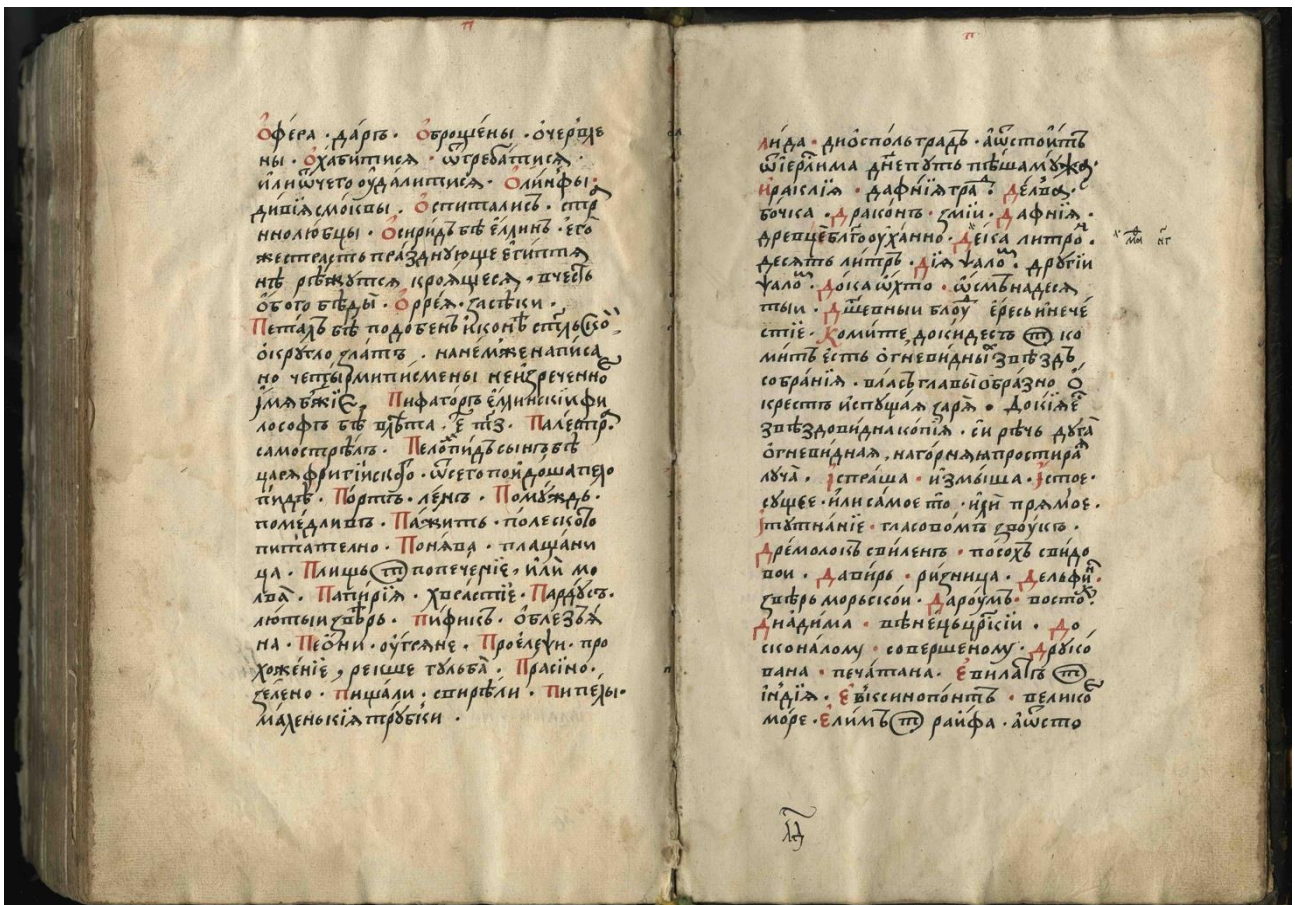 п
Офе́ра · да́ръ · Оброще́ны · очервле
ны · Охабитися · ѿгреба́тися ·
или ѿчего ѹдалитися · Оли́нфы ·
дивїѧ смо́квы · Оспиталисѧ · стра
ннолюбцы · Осиридъ бѣ е́ллинъ · его
же страсть пра́зднующе египтѧ
нѣ рѣжутсѧ кроѧщесѧ, вчесть
обого бѣды · Оррея · засѣки ·
Петалъ бѣ подобенъ иконѣ
окру́гло злато · на не́мже написа
но четы́рми писмены неизреченно
імѧ бж҃їе, Пифаторъ е́ллинскїи фи
лософъ бѣ
самострѣлъ · Пелопидъ сынъ бѣ
царѧ фригїйского · ѿ сего поидоша пело
пидѣ · Портъ · ле́нъ · Пому́ждь ·
поме́дливъ · Па́жить · поле ското
питателно · Поня́ва · плащани
ца · Плищь т попече́нїе, или мо
лва · Папирїѧ · хврастїе · Пардусъ ·
лютыи звѣрь · пификъ · облезьѧ
на · Пео́ни · угряне · Прое́леѵи · про
хоже́нїе, рекше гульба · Прасїно ·
зелено · пищали · свирѣли · Пипелы ·
ма́ленькїѧ тру́бки ·
п
лида · диосполь градъ · аѿстоитъ
ѿ іерл҃има дн҃е путь пѣша му́жа ·
Ираклїѧ · дафнїѧ гра · Де́лва ·
бо́чка · Драконъ · змїи · Дафнїѧ ·
древце бл҃гоуханно · Де́ка литро ·
десять литръ · Дїѧ ѱало · другїи
ѱало · Дока ѡхто · ѡсмънадесѧ
тыи · Дш҃евныи блу ересь и нече
стїе · Комите, докидесъ т ко
митъ есть огневи́дныи звѣздъ
собранїѧ · власъ главы ѡбразно
крестъ испущаѧ зарѧ · Докїѧ е
звѣздовидна копїѧ · си рѣчь дуга
огневи́дная, на горнѧѧ простира
луча · Іспраша · измыша · Істое ·
сущее · или са́мое то · или прѧмое ·
Іпутнанїе · гласовомъ звукъ ·
Дре́молокъ свиленъ · посохъ свидо
вои · Давиръ · ризница · Дельфи
звѣрь морьскои · Дароумъ · восто ·
Диадима · вѣнецъ црскїи · До
сконалому · совершеному · Друко
вана · печатана · Евилатъ т
індїѧ · Евксинопонтъ · велико
море · Елимъ т раифа · аѿсто